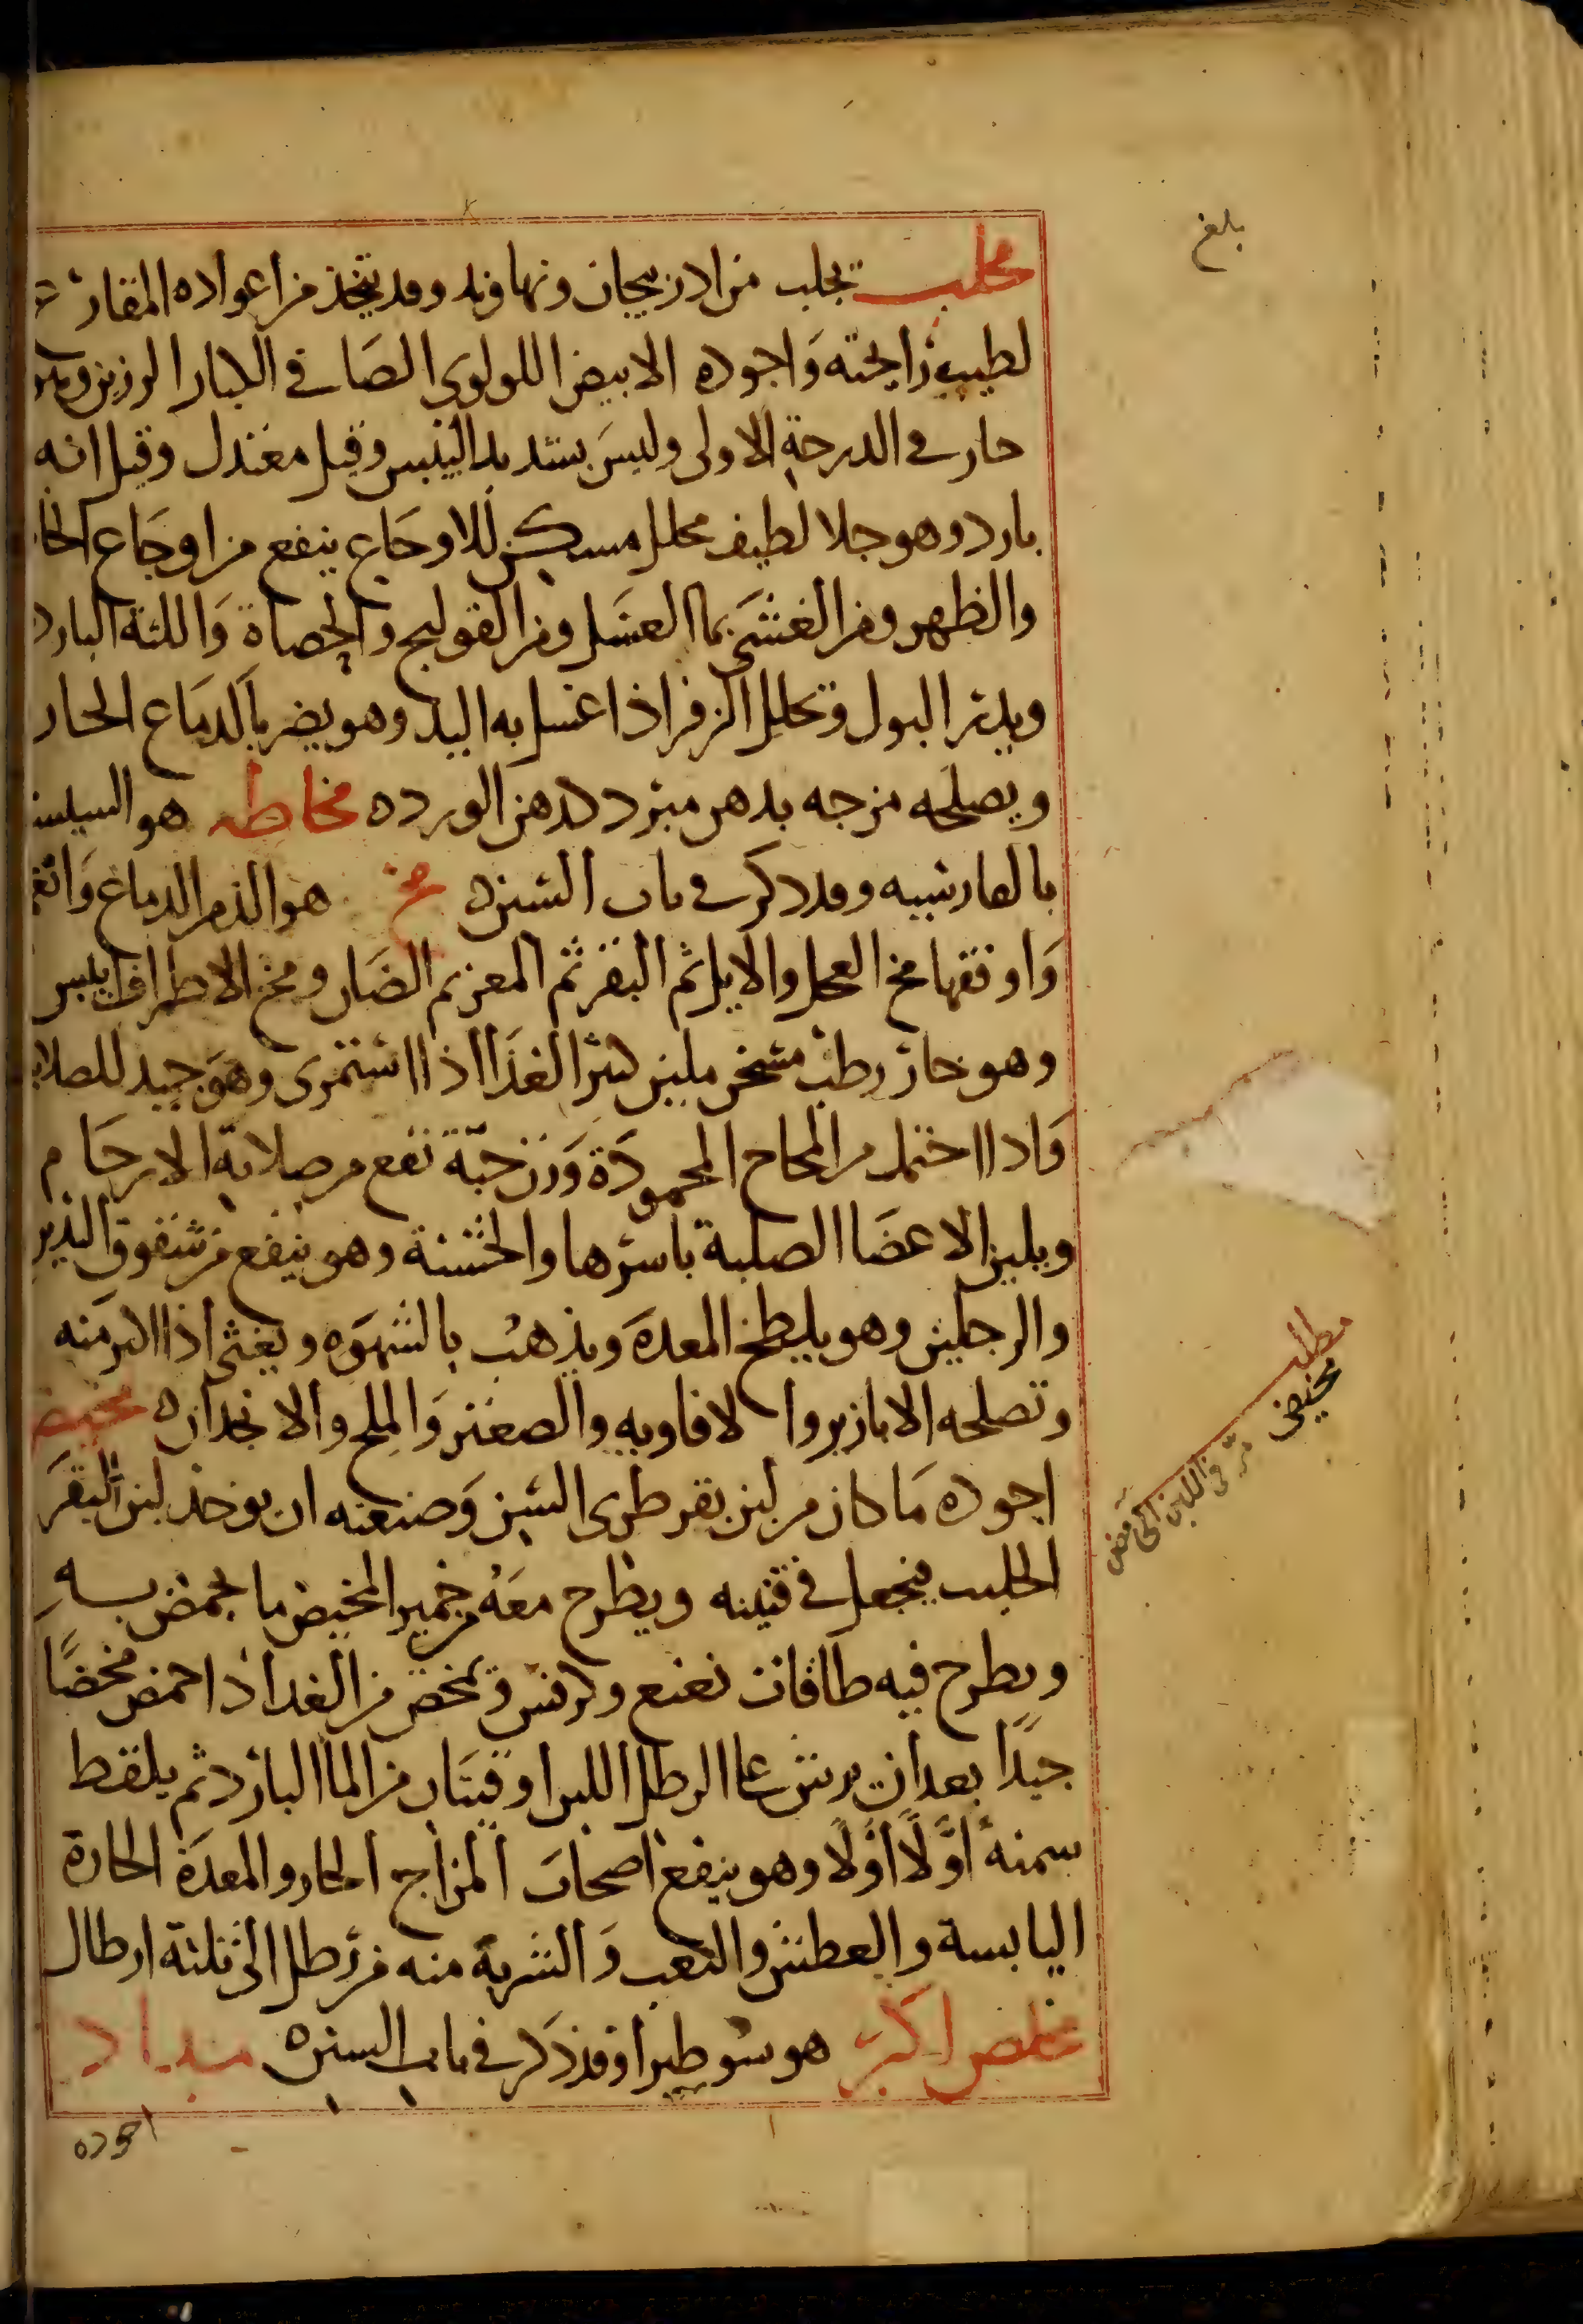 بلغ
محلب يجلب من اذربيجان ونهاوند وقد يتخذ من اعواده المقارع
لطيب رايحته واجوده الابيض اللولوى الصافى الكبار الرزين وهو
حار فى الدرجة الاولى وليس بشديد اليبس وقيل معتدل وقيل انه
بارد وهو جلا لطيف محلل مسكن للاوجاع ينفع من اوجاع الخا
والظهر ومن الغشى بما العسل ومن القولنج والحصاة واللثة البارد
ويدر البول وتحلل الزفر اذا غسل به اليد وهو يضر بالدماغ الحار
ويصلحه مزجه بدهن مبرد كدهن الورد ه مخاطه هو السبستا
بالفارسيه وقد ذكر فى باب السين ه مخ هو الذ من الدماغ وانفع
واوفقها مخ العجل والايل ثم البقر ثم المعز ثم الضان ومخ الاطراف يلبس
وهو حار رطب مسخن ملين كثير الغذا اذا استمرى وهو جيد للصلابه
واذا احتمل من المخاخ المحمودة وزن حبة نفع من صلابة الارحام
ويلين الاعضا الصلبة باسرها والخشنة وهو ينفع من شقوق اليدين
والرجلين وهو يلطخ المعدة ويذهب بالشهوه ويغثى اذا اكثر منه
وتصلحه الابازير والافاويه والصعتر والملح والانجدان ه مخيض
اجوده ما كان من لبن بقر طرى السن وصنعته ان يوخذ لبن البقر
الحليب فيجعل فى قنينه ويطرح معه من خمير المخيض ما يحمض به
ويطرح فيه طاقات نعنع وكرفس وتمخض من الغد اذا حمض مخضًا
جيدًا بعد ان يرش على الرطل اللبن اوقيتان من الما البارد ثم يلقط
سمنه اولًا اولًا وهو ينفع اصحاب المزاج الحار والمعدة الحارة
اليابسة والعطش والتعب والشربة منه من رطل الى ثلثة ارطال
مخلص اكبر هو سوطيرا وقد ذكر فى باب السين ه مداد
اجوده
مطلب
مخيض